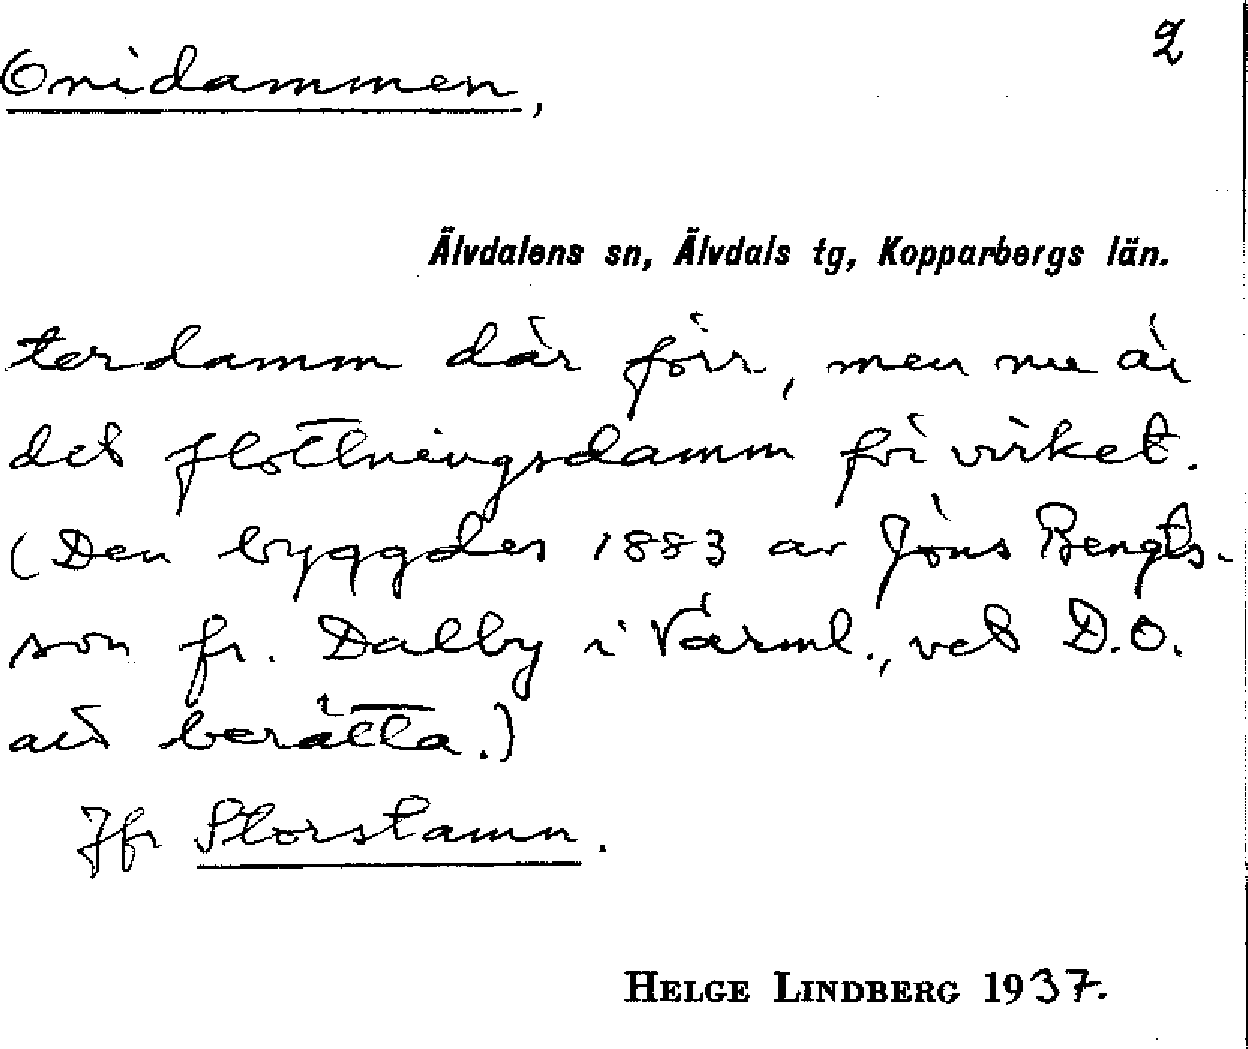 2
Onidammen,
Älvdalens sn, Älvdals tg, Kopparbergs län.
terdamm där förr, men nu är
det flottningsdamm för virket.
(Den byggdes 1883 av Jöns Bengts-
son fr. Dalby i Värml., vet D.O.
att berätta.)
Jfr Storstamn.
HELGE LINDBERG 1937.